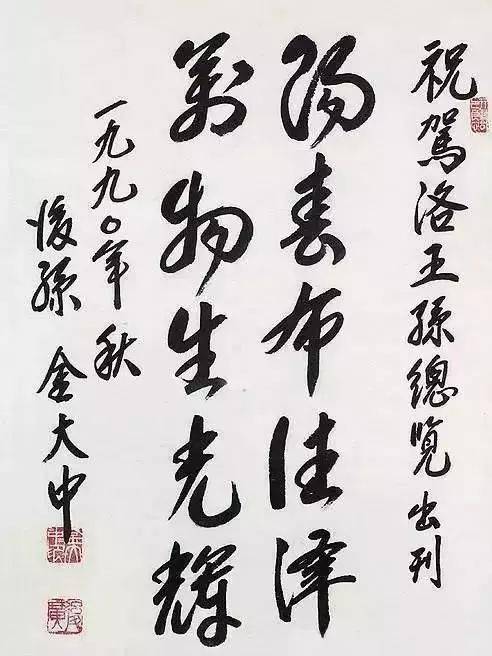 祝駕洛王孫總覽出刊
陽春布德澤
萬物生光輝
一九九〇年 秋
後孫 金大中